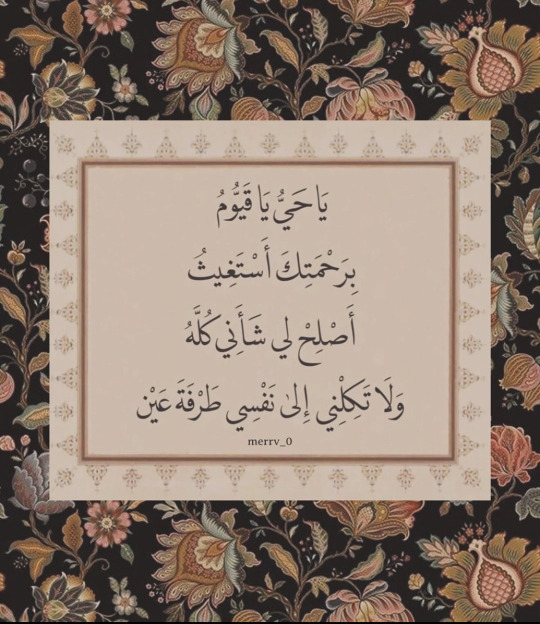 يَا حَيُّ يَا قَيُّومُ
بِرَحْمَتِكَ أَسْتَغِيثُ
أَصْلِحْ لِي شَأْنِي كُلَّهُ
وَلَا تَكِلْنِي إِلىٰ نَفْسِي طَرْفَةَ عَيْن
merrv_0